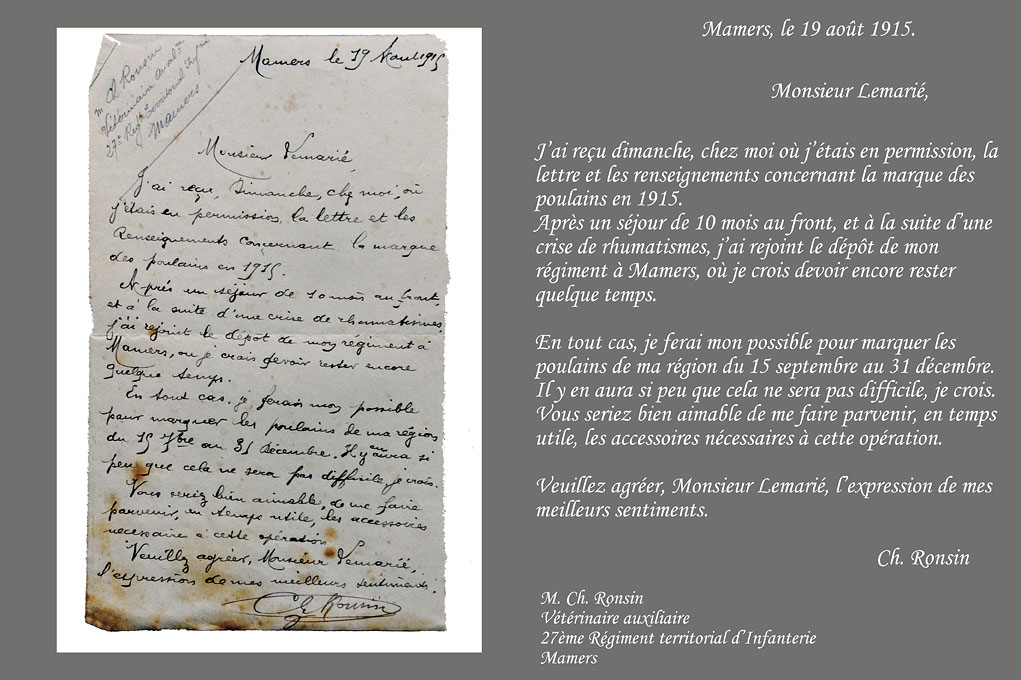 Mr Ch Ronsin
Vétérinaire auxil
27e Regt Territorial
Mamers
Mamers le 19 Aout 1915
Monsieur Lemarié
J'ai reçu, Dimanche, chez moi, où
j'étais en permission, la lettre et les
Renseignements concernant la marque
des poulains en 1915.
Après un séjour de 10 mois au front,
et à la suite d'une crise de rhumatismes,
j'ai rejoint le dépot de mon régiment à
Mamers, ou je crois devoir rester encore
quelque temps.
En tout cas, je ferais mon possible
pour marquer les poulains de ma région
du 15 7bre au 31 Décembre. Il y aura si
peu que cela ne sera pas difficile, je crois.
Vous seriez bien aimable, de me faire
parvenir, en temps utile, les accessoires
necessaire à cette opération
Veuillez agréer, Monsieur Lemarié,
l'expression de mes meilleurs sentiments.
Ch Ronsin
Mamers, le 19 août 1915.
Monsieur Lemarié,
J'ai reçu dimanche, chez moi où j'étais en permission, la
lettre et les renseignements concernant la marque des
poulains en 1915.
Après un séjour de 10 mois au front, et à la suite d'une
crise de rhumatismes, j'ai rejoint le dépôt de mon
régiment à Mamers, où je crois devoir encore rester
quelque temps.
En tout cas, je ferai mon possible pour marquer les
poulains de ma région du 15 septembre au 31 décembre.
Il y en aura si peu que cela ne sera pas difficile, je crois.
Vous seriez bien aimable de me faire parvenir, en temps
utile, les accessoires nécessaires à cette opération.
Veuillez agréer, Monsieur Lemarié, l'expression de mes
meilleurs sentiments.
Ch. Ronsin
M. Ch. Ronsin
Vétérinaire auxiliaire
27ème Régiment territorial d'Infanterie
Mamers